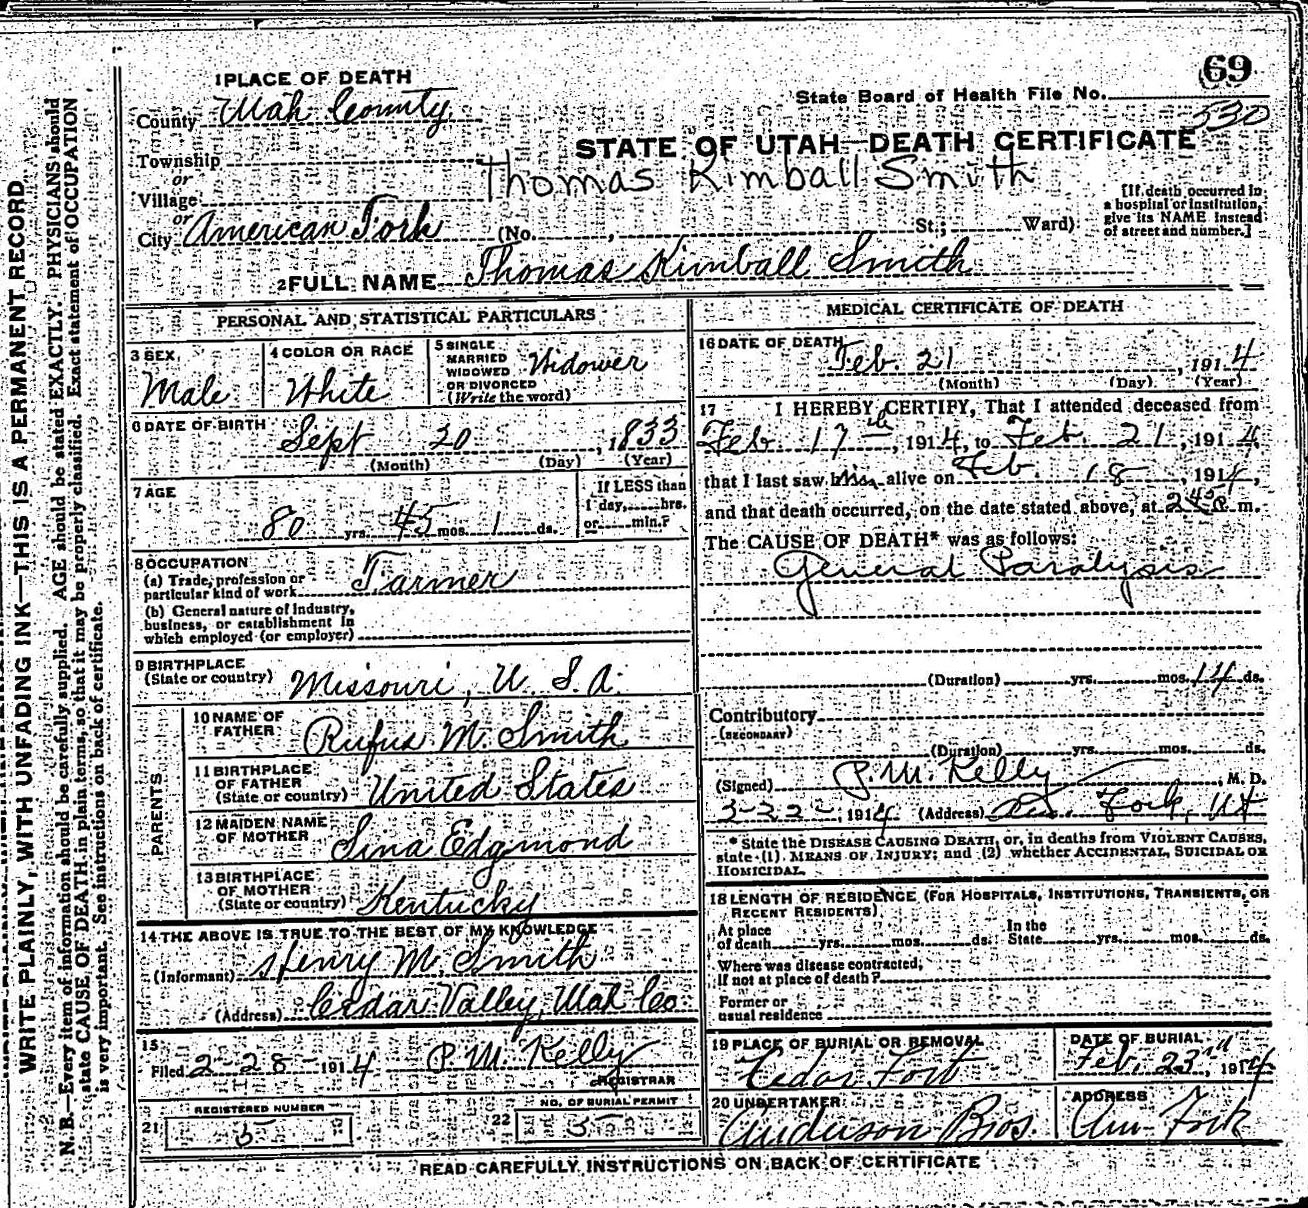 69
State Board of Health File No. 530
1 PLACE OF DEATH
County Utah County
STATE OF UTAH—DEATH CERTIFICATE
Township
or
Village
Thomas Kimball Smith
or
City American Fork (No. , St.; Ward)
[If death occurred in
a hospital or institution,
give its NAME instead
of street and number.]
2 FULL NAME Thomas Kimball Smith
PERSONAL AND STATISTICAL PARTICULARS
3 SEX
Male
4 COLOR OR RACE
White
5 SINGLE
MARRIED
WIDOWED
OR DIVORCED
(Write the word)
Widower
6 DATE OF BIRTH
Sept 20, 1833
(Month) (Day) (Year)
7 AGE
80 yrs. 5 mos. 1 ds.
If LESS than
1 day, hrs.
or min.?
8 OCCUPATION
(a) Trade, profession or
particular kind of work Farmer
(b) General nature of industry,
business, or establishment in
which employed (or employer)
9 BIRTHPLACE
(State or country) Missouri, U. S. A.
PARENTS
10 NAME OF
FATHER Rufus M. Smith
11 BIRTHPLACE
OF FATHER
(State or country) United States
12 MAIDEN NAME
OF MOTHER Sina Edgmond
13 BIRTHPLACE
OF MOTHER
(State or country) Kentucky
14 THE ABOVE IS TRUE TO THE BEST OF MY KNOWLEDGE
(Informant) Henry M. Smith
(Address) Cedar Valley, Utah Co
15
Filed 2-28-1914 P. M. Kelly
REGISTRAR
21 REGISTERED NUMBER
5
22 NO. OF BURIAL PERMIT
5
MEDICAL CERTIFICATE OF DEATH
16 DATE OF DEATH
Feb. 21, 1914
(Month) (Day) (Year)
17 I HEREBY CERTIFY, That I attended deceased from
Feb. 17th, 1914, to Feb. 21, 1914
that I last saw him alive on Feb. 18, 1914,
and that death occurred, on the date stated above, at m.
The CAUSE OF DEATH* was as follows:
General Paralysis
(Duration) yrs. mos. 14 ds.
Contributory
(SECONDARY)
(Duration) yrs. mos. ds.
(Signed) P. M. Kelly, M. D.
1914 (Address) Am. Fork, Ut
* State the DISEASE CAUSING DEATH, or, in deaths from VIOLENT CAUSES,
state (1) MEANS OF INJURY; and (2) whether ACCIDENTAL, SUICIDAL OR
HOMICIDAL.
18 LENGTH OF RESIDENCE (FOR HOSPITALS, INSTITUTIONS, TRANSIENTS, OR
RECENT RESIDENTS)
At place
of death yrs. mos. ds.
In the
State yrs. mos. ds.
Where was disease contracted,
if not at place of death?
Former or
usual residence
19 PLACE OF BURIAL OR REMOVAL
Cedar Fort
DATE OF BURIAL
Feb. 23rd, 1914
20 UNDERTAKER
Anderson Bros.
ADDRESS
Am Fork
READ CAREFULLY INSTRUCTIONS ON BACK OF CERTIFICATE
WRITE PLAINLY, WITH UNFADING INK—THIS IS A PERMANENT RECORD
N. B.—Every item of information should be carefully supplied. AGE should be stated EXACTLY. PHYSICIANS should
state CAUSE OF DEATH in plain terms, so that it may be properly classified. Exact statement of OCCUPATION
is very important. See instructions on back of certificate.